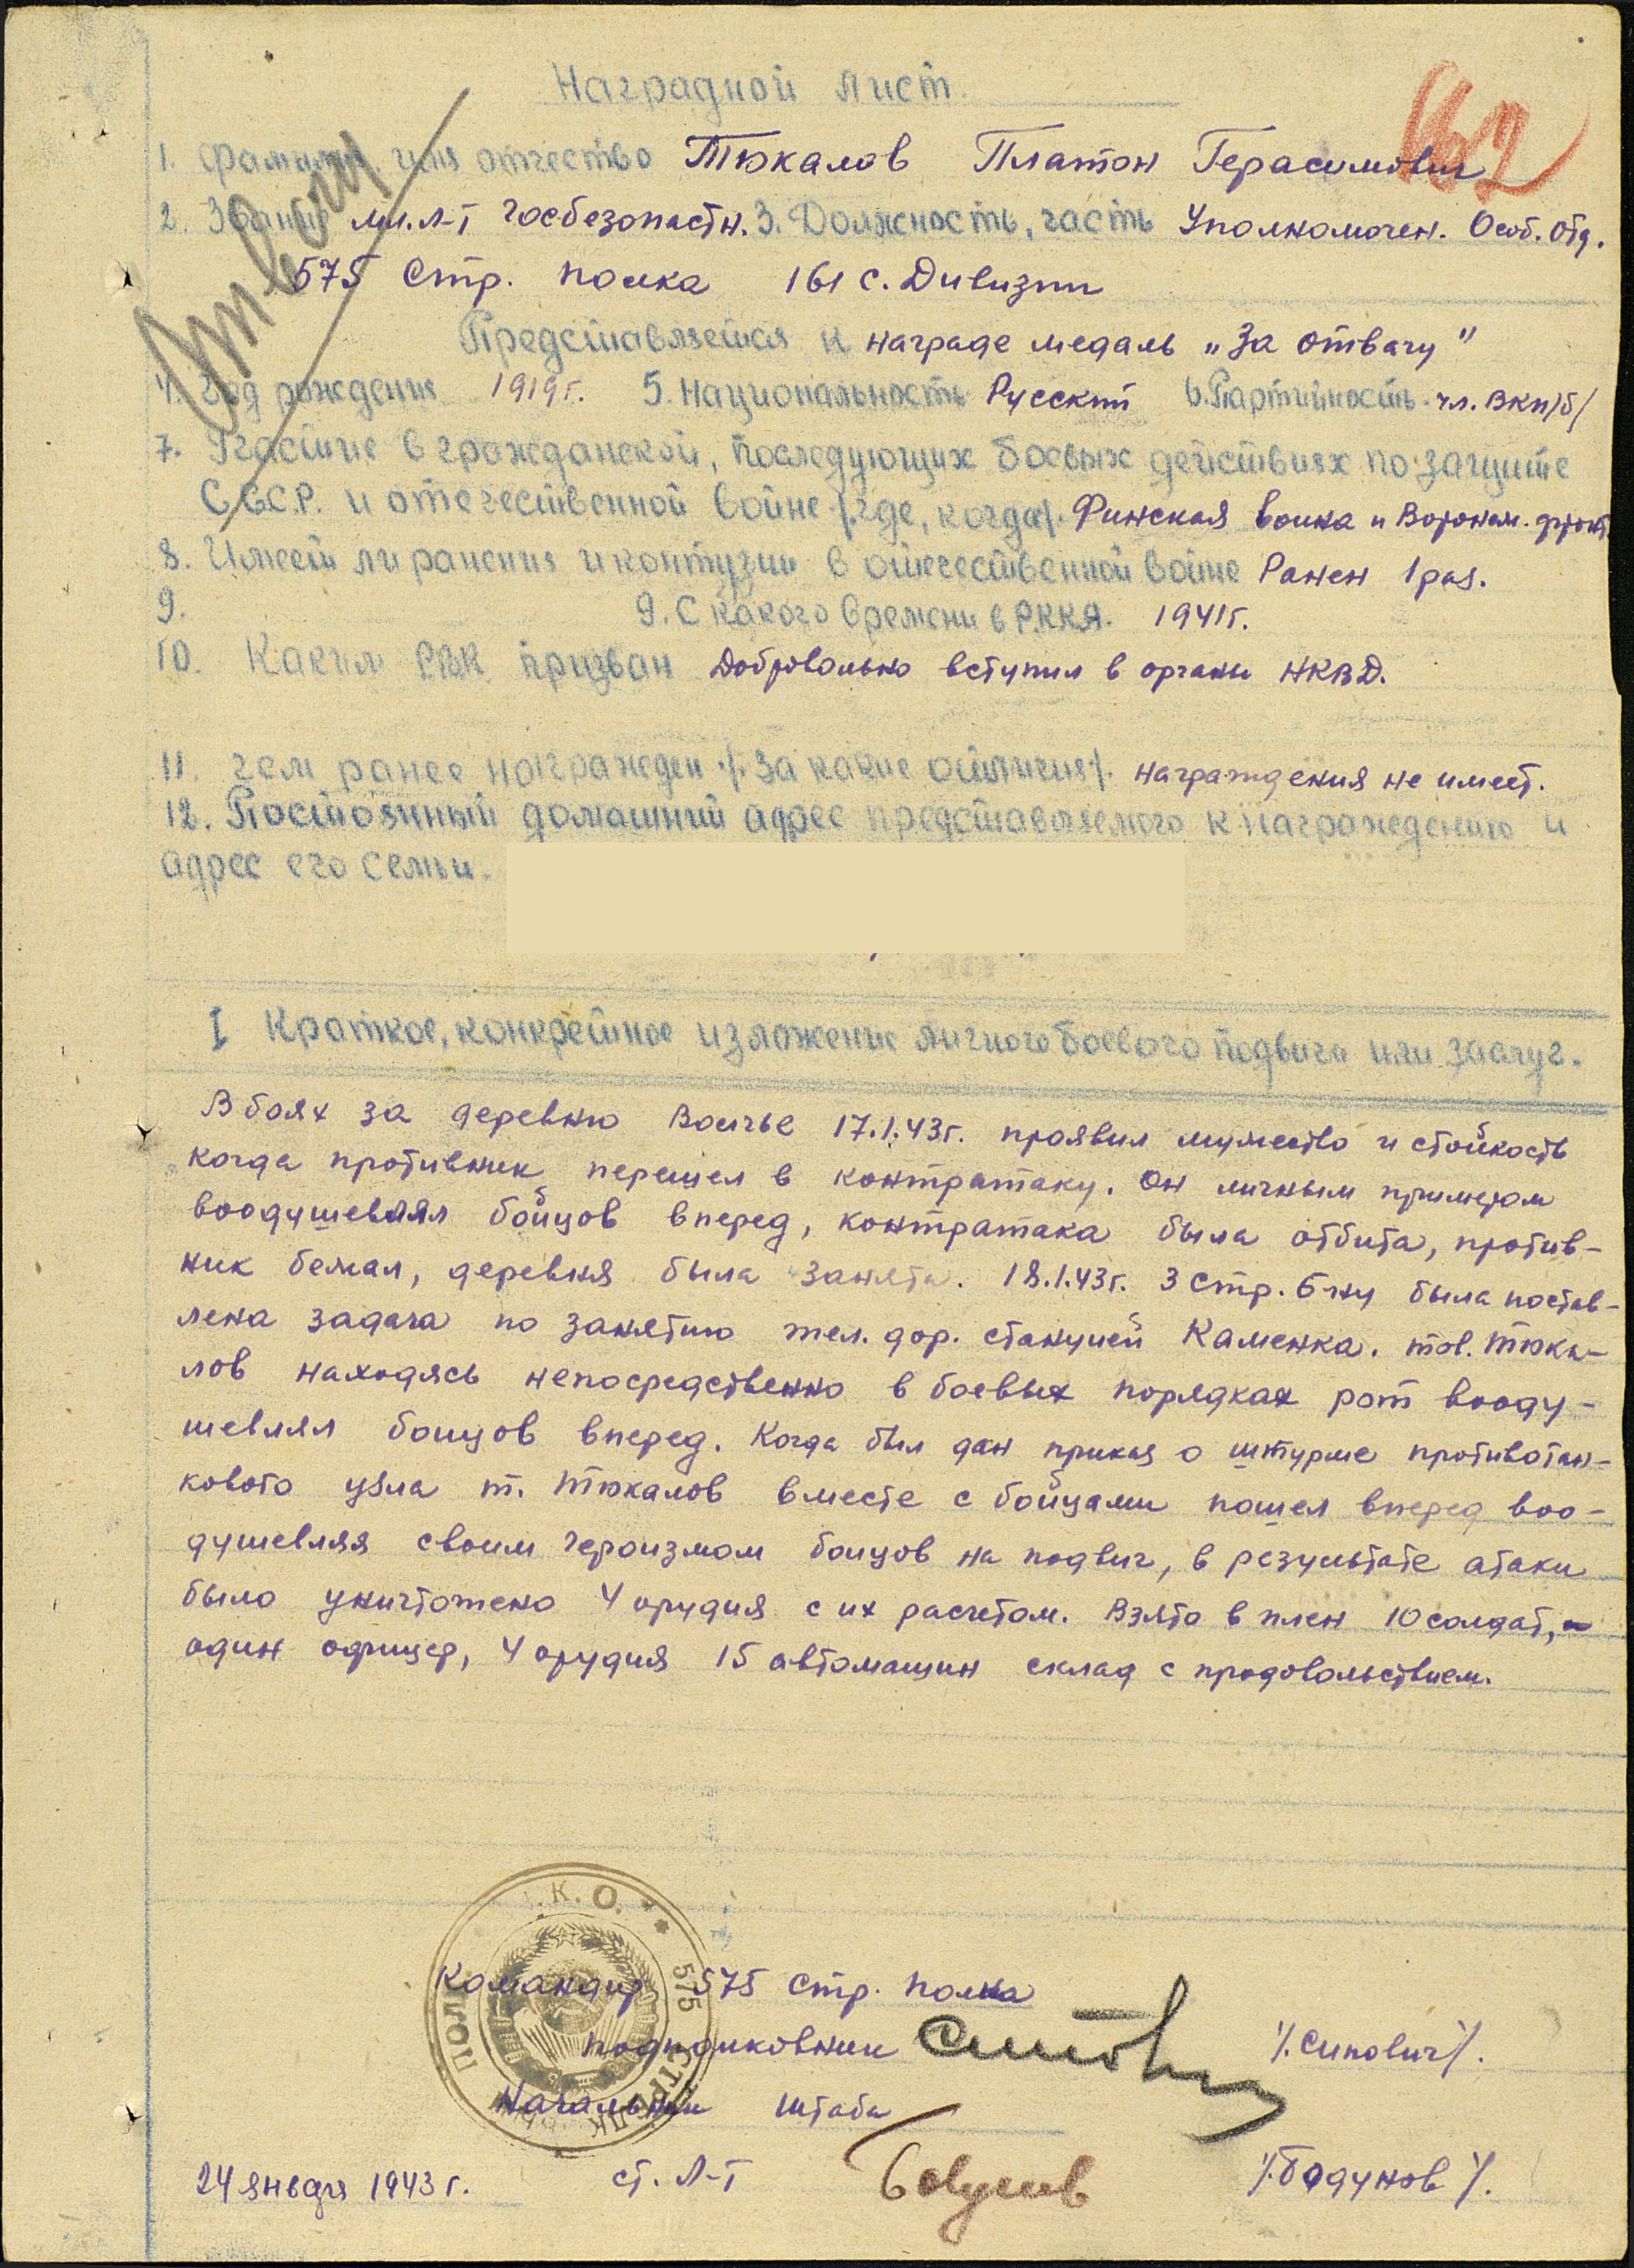 Наградной лист
162
1. Фамилия, имя отчество Тюкалов Платон Герасимович
2. Звание мл. л-т госбезопастн. 3. Должность, часть Уполномочен. Особ. отд.
575 Стр. полка 161 с. Дивизии
Представляется к награде медаль „За отвагу"
4. Год рождения 1919г. 5. Национальность Русский 6. Партийность чл. ВКП/б/
7. Участие в гражданской, последующих боевых действиях по защите
С.С.С.Р. и отечественной войне /.где, когда/. Финская воина и Воронеж. фронт.
8. Имеет ли ранения и контузии в отечественной войне Ранен 1 раз.
9. 9. С какого времени в Р.К.К.А. 1941г.
10. Каким РВК призван Добровольно вступил в органы НКВД.
11. чем ранее награжден ./.за какие отличия/. награждения не имеет.
12. Постоянный домашний адрес представляемого к награждению и
адрес его семьи.
I Краткое, конкретное изложение личного боевого подвига или заслуг.
В боях за деревню Волчье 17.1.43г. проявил мужество и стойкость
когда противник перешел в контратаку. Он личным примером
воодушевлял бойцов вперед, контратака была отбита, против-
ник бежал, деревня была занята. 18.1.43г. 3 стр. б-ну была постав-
лена задача по занятию жел. дор. станцией Каменка. тов. Тюка-
лов находясь непосредственно в боевых порядках рот вооду-
шевлял бойцов вперед. Когда был дан приказ о штурме противотан-
кового узла т. Тюкалов вместе с бойцами пошел вперед воо-
душевляя своим героизмом бойцов на подвиг, в результате атаки
было уничтожено 4 орудия с их расчетом. Взято в плен 10 солдат,
один офицер, 4 орудия 15 автомашин склад с продовольствием.
.К.О. ** 575 СТРЕЛК ПОЛК
Командир 575 Стр. полка
подполковник /.Сипович/.
Начальник штаба
24 января 1943 г. ст. л-т /.Бодунов/.